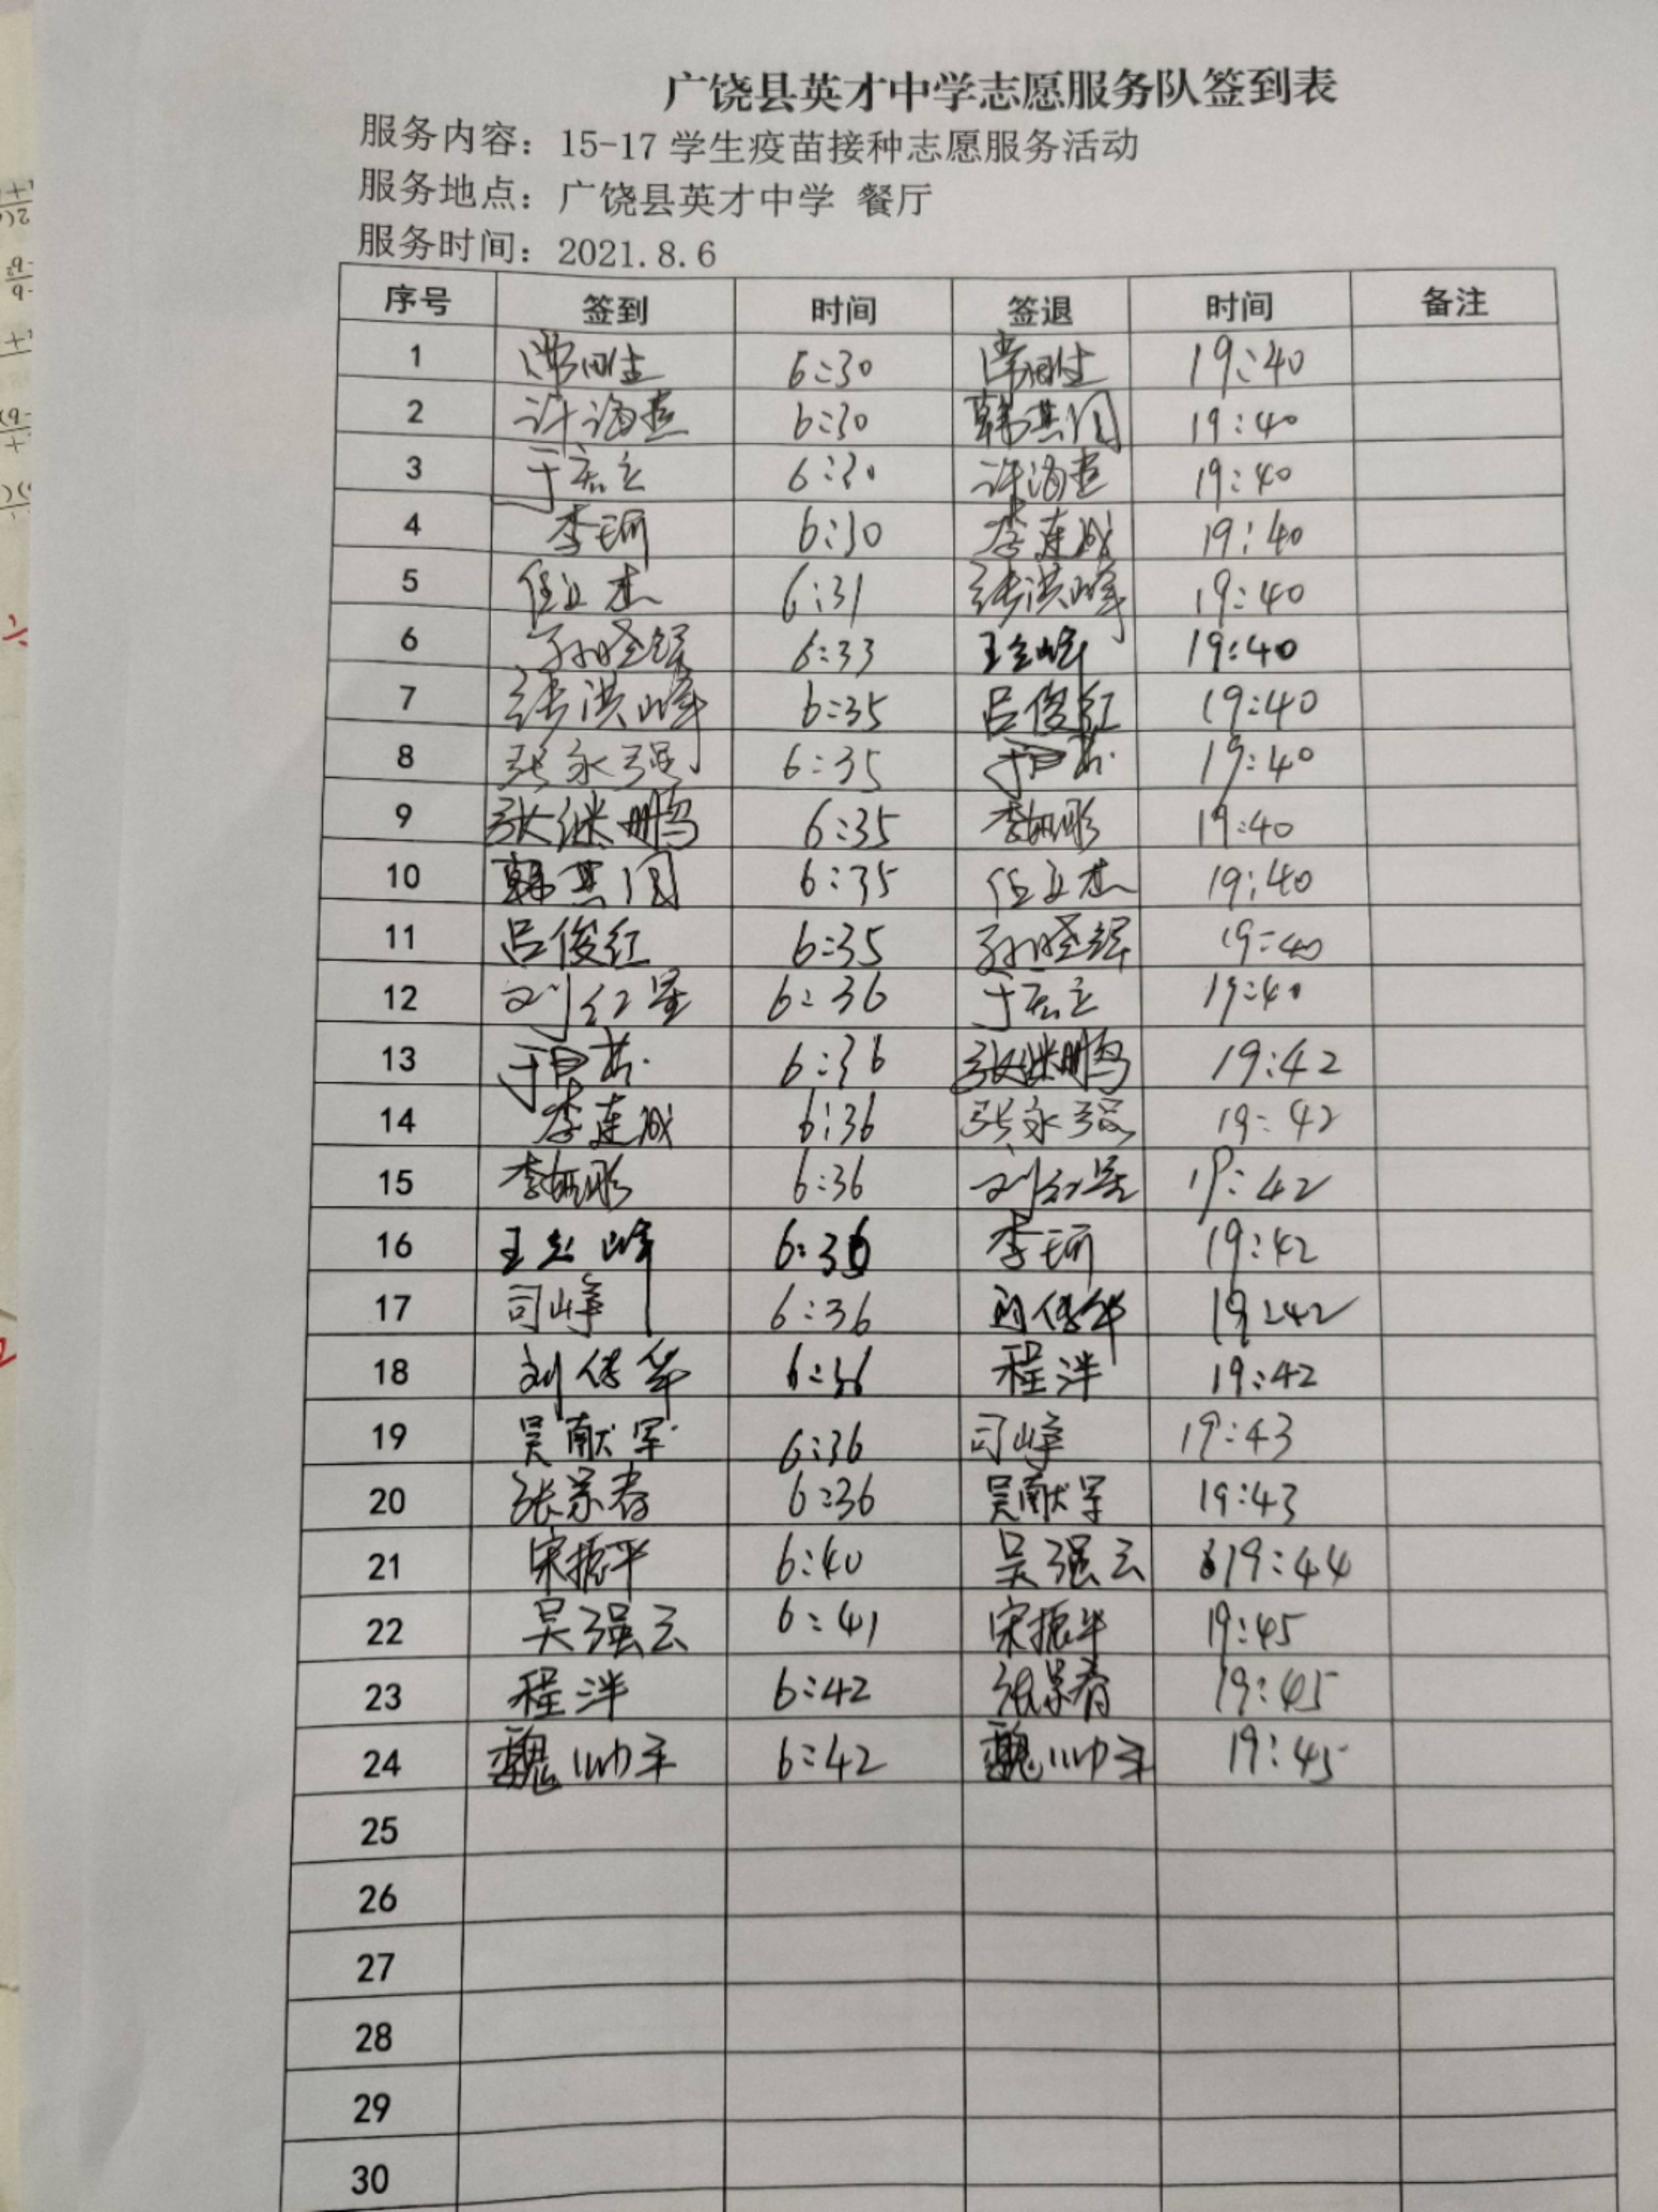 广饶县英才中学志愿服务队签到表
服务内容：15-17 学生疫苗接种志愿服务活动
服务地点：广饶县英才中学 餐厅
服务时间：2021.8.6
序号 签到 时间 签退 时间 备注
1 6:30 19:40
2 许海燕 6:30 韩其国 19:40
3 于宏立 6:30 许海燕 19:40
4 李珂 6:30 李连成 19:40
5 任立杰 6:31 张洪峰 19:40
6 孙晓辉 6:33 19:40
7 张洪峰 6:35 吕俊红 19:40
8 张永强 6:35 19:40
9 张继鹏 6:35 19:40
10 韩其国 6:35 任立杰 19:40
11 吕俊红 6:35 孙晓辉 19:40
12 刘红星 6:36 于宏立 19:40
13 6:36 张继鹏 19:42
14 李连成 6:36 张永强 19:42
15 6:36 刘红星 19:42
16 6:36 李珂 19:42
17 司峰 6:36 刘传华 19:42
18 刘传华 6:36 程洋 19:42
19 吴献军 6:36 司峰 19:43
20 张景春 6:36 吴献军 19:43
21 宋振平 6:40 吴强云 19:44
22 吴强云 6:41 宋振平 19:45
23 程洋 6:42 张景春 19:45
24 魏帅军 6:42 魏帅军 19:45
25
26
27
28
29
30